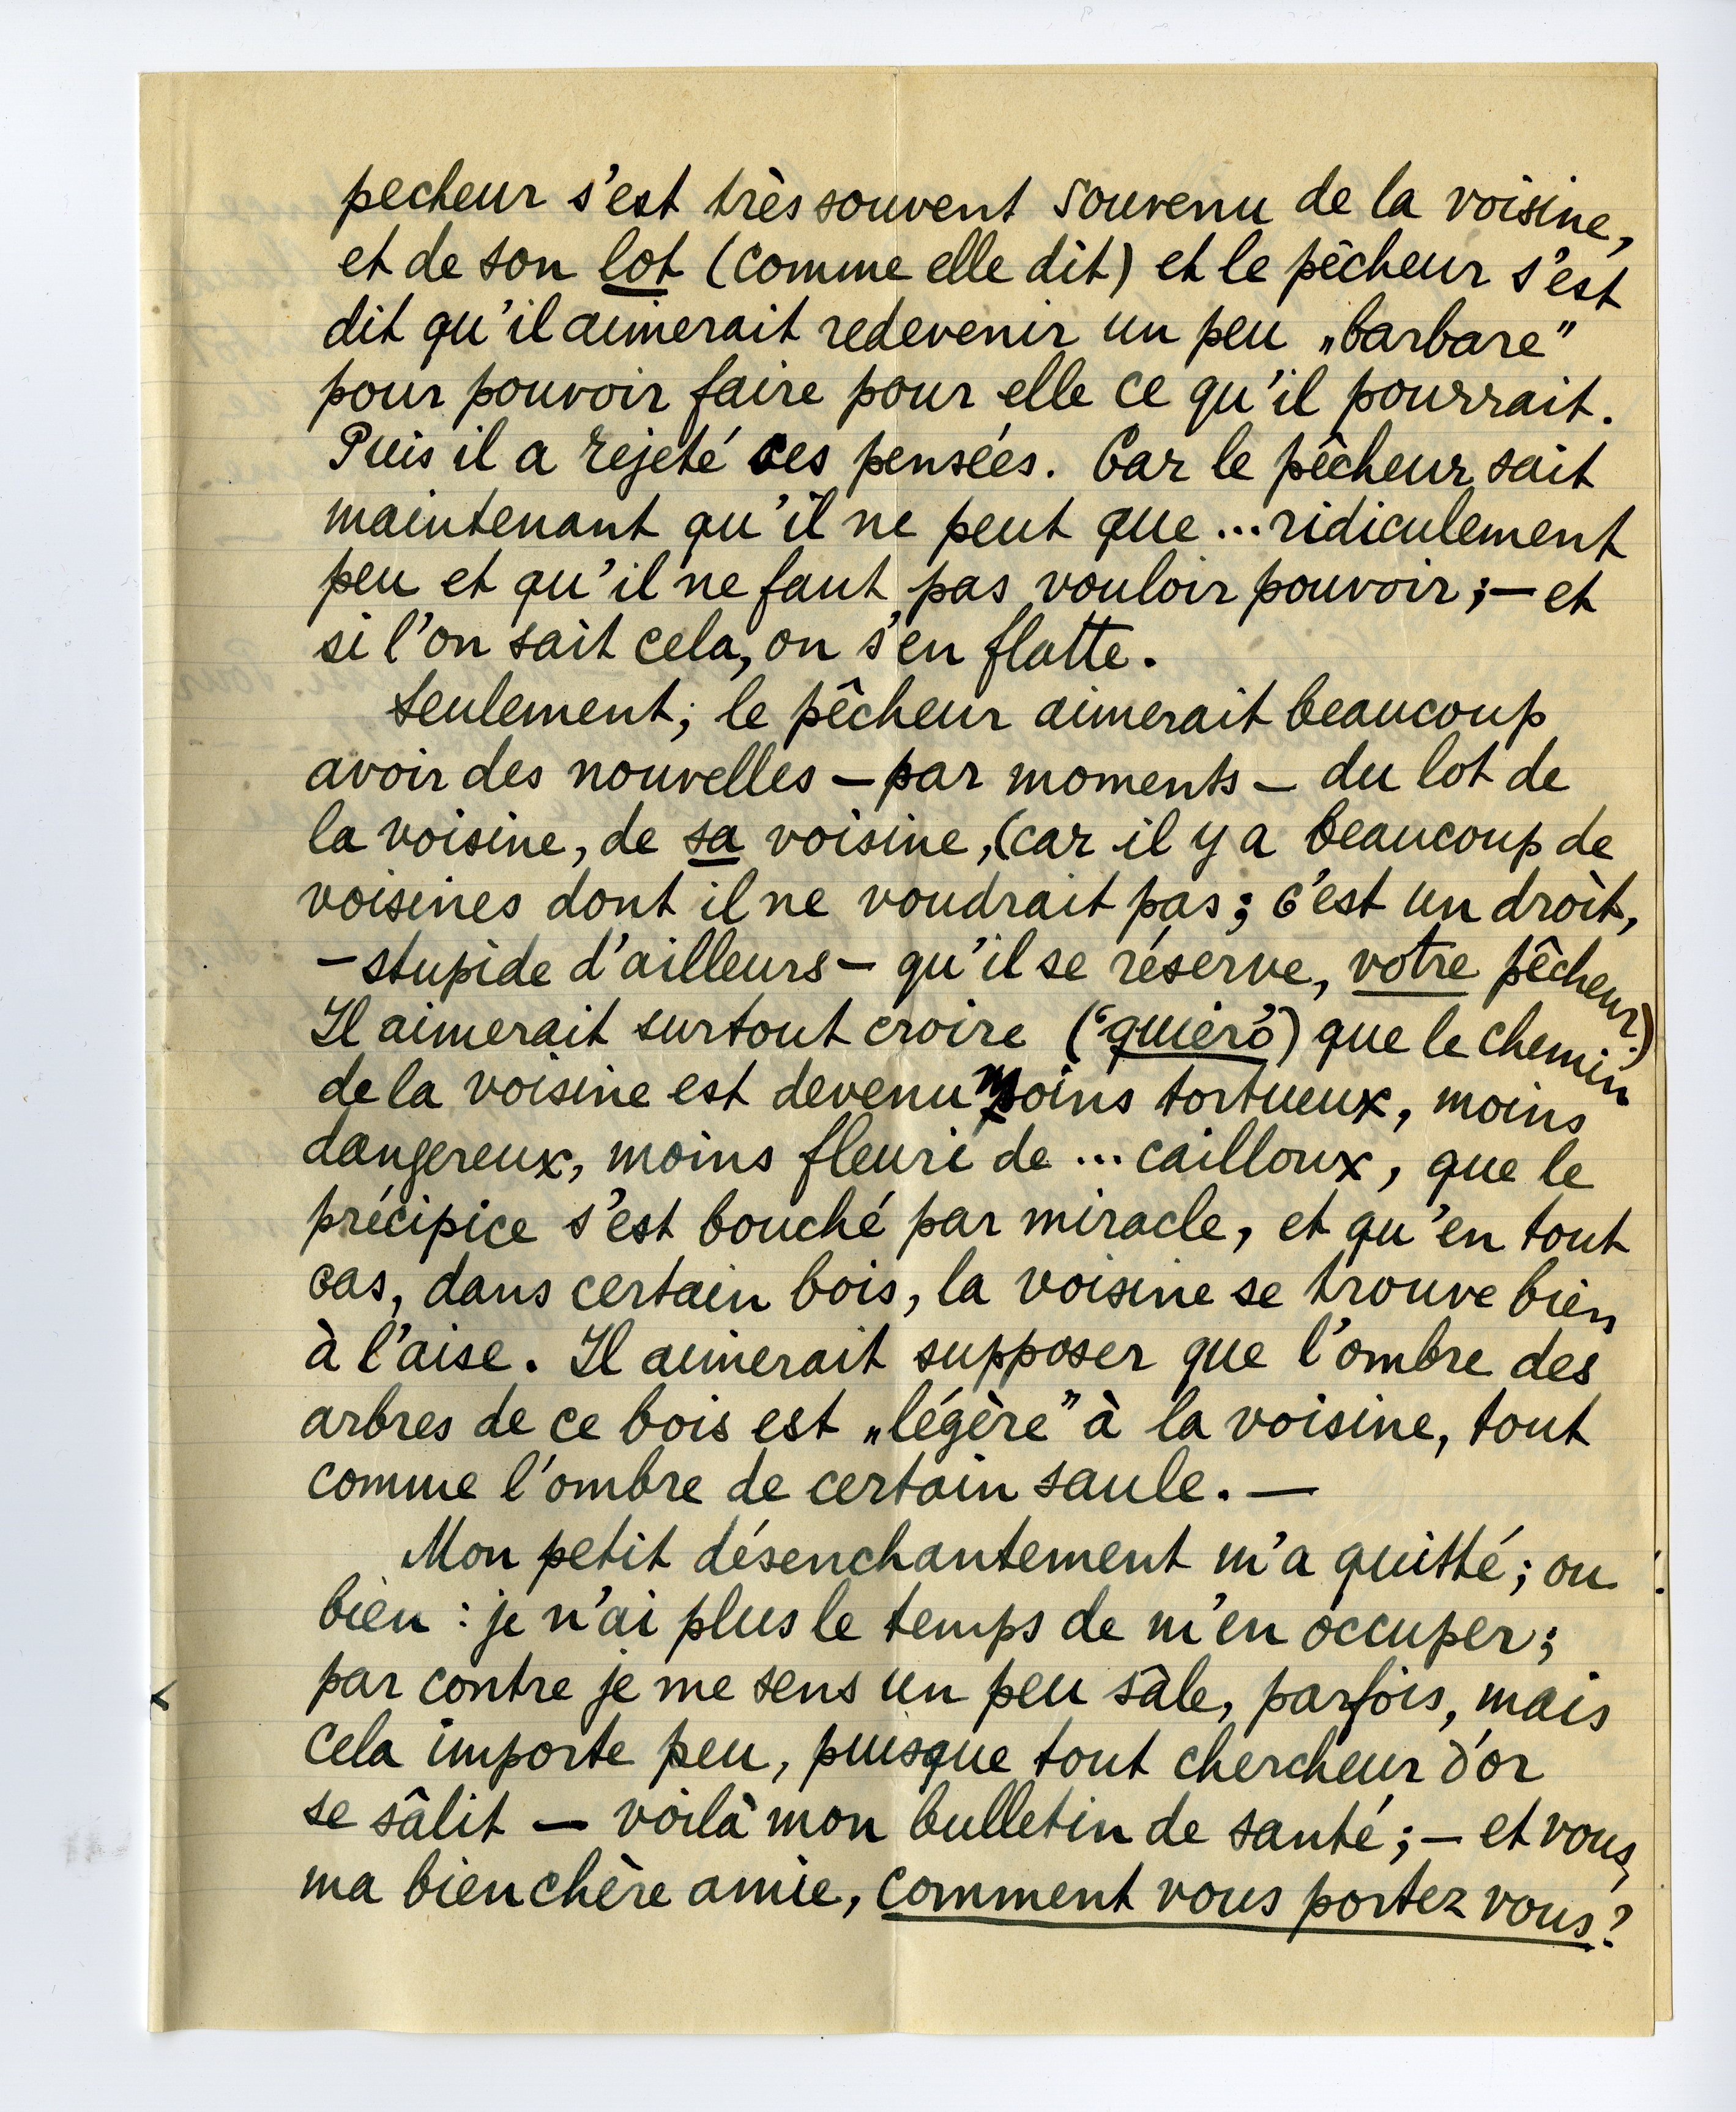 pecheur s'est très souvent souvenu de la voisine,
et de son lot (comme elle dit) et le pêcheur s'est
dit qu'il aimerait redevenir un peu „barbare”
pour pouvoir faire pour elle ce qu'il pourrait.
Puis il a rejeté ces pensées. Car le pêcheur sait
maintenant qu'il ne peut que ... ridiculement
peu et qu'il ne faut pas vouloir pouvoir; — et
si l'on sait cela, on s'en flatte.
Seulement; le pêcheur aimerait beaucoup
avoir des nouvelles — par moments — du lot de
la voisine, de sa voisine, (car il y a beaucoup de
voisines dont il ne voudrait pas; c'est un droit,
— stupide d'ailleurs — qu'il se réserve, votre pêcheur.)
Il aimerait surtout croire (“quiero”) que le chemin
de la voisine est devenu moins tortueux, moins
dangereux, moins fleuri de ... cailloux, que le
précipice s'est bouché par miracle, et qu'en tout
cas, dans certain bois, la voisine se trouve bien
à l'aise. Il aimerait supposer que l'ombre des
arbres de ce bois est „légère” à la voisine, tout
comme l'ombre de certain saule. —
Mon petit désenchantement m'a quitté; ou
bien : je n'ai plus le temps de m'en occuper;
par contre je me sens un peu sâle, parfois, mais
cela importe peu, puisque tout chercheur d'or
se sâlit — voilà mon bulletin de santé; — et vous,
ma bien chère amie, comment vous portez vous?